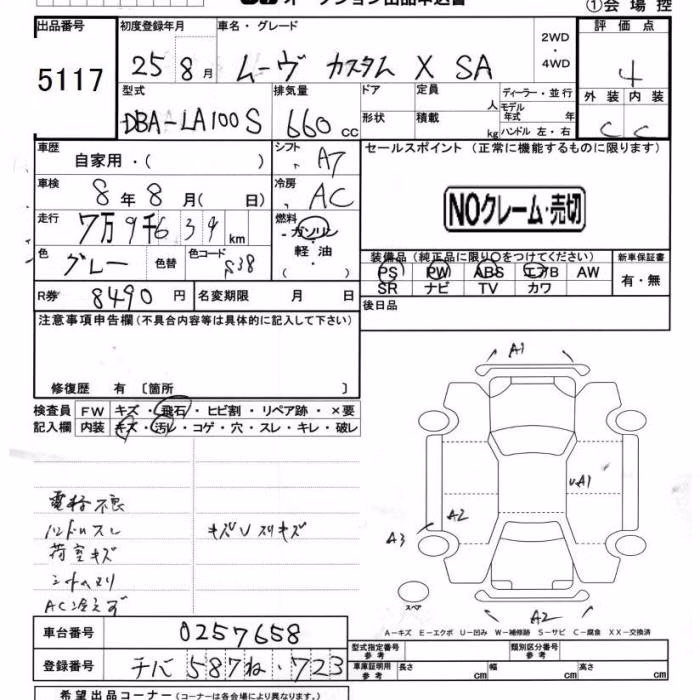 オークション出品申込書
①会場控
出品番号 初度登録年月 車名・グレード 評価点
5117 25 8月 ムーヴ カスタム X SA 2WD・4WD 4
型式 排気量 ドア 定員 人 ディーラー・並行 外装 内装
DBA-LA100S 660cc 形状 積載 kg モデル年式 年 ハンドル 左・右 C C
車歴 自家用・( ) シフト A7 セールスポイント (正常に機能するものに限ります)
車検 8年8月( 日) 冷房 AC NOクレーム・売切
走行 7万9千634km 燃料 ガソリン・軽油
色 グレー 色替 色コード S38 装備品(純正品に限り○をつけてください) 新車保証書
PS PW ABS エアB AW 有・無
SR ナビ TV カワ
R券 8490円 名変期限 月 日 後日品
注意事項申告欄(不具合内容等は具体的に記入して下さい)
修復歴 有 〔箇所 〕
検査員 FW キズ・飛石・ヒビ割・リペア跡・×要
記入欄 内装 キズ・汚レ・コゲ・穴・スレ・キレ・破レ
A1
A1
A2
A3
A2
スペア
電格不良
ハンドルスレ キズ∪スリキズ
荷室キズ
AC冷えず
A−キズ E−エクボ U−凹み W−補修跡 S−サビ C−腐食 XX−交換済
車台番号 0257658
型式指定番号 参考 類別区分番号 参考
登録番号 チバ 587 ね・723
車庫証明用 参考 長さ cm 幅 cm 高さ cm
希望出品コーナー(コーナーは各会場により異なります。)